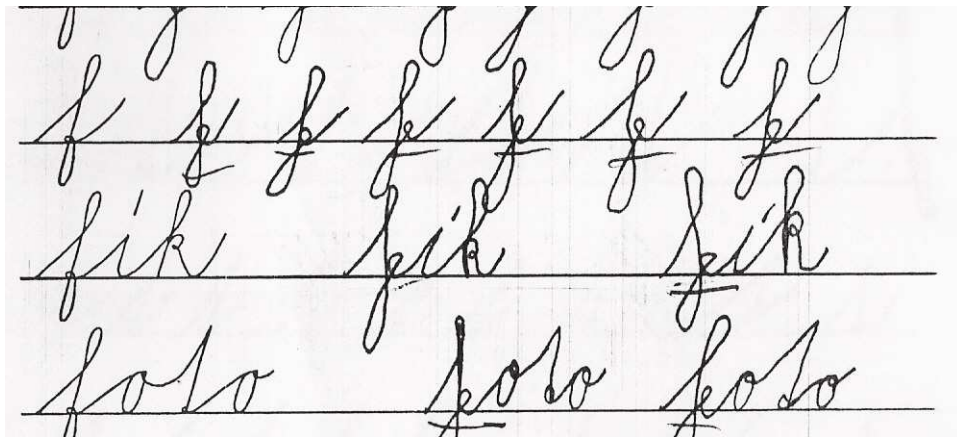 f f f f f f f
fík fík fík
foto foto foto